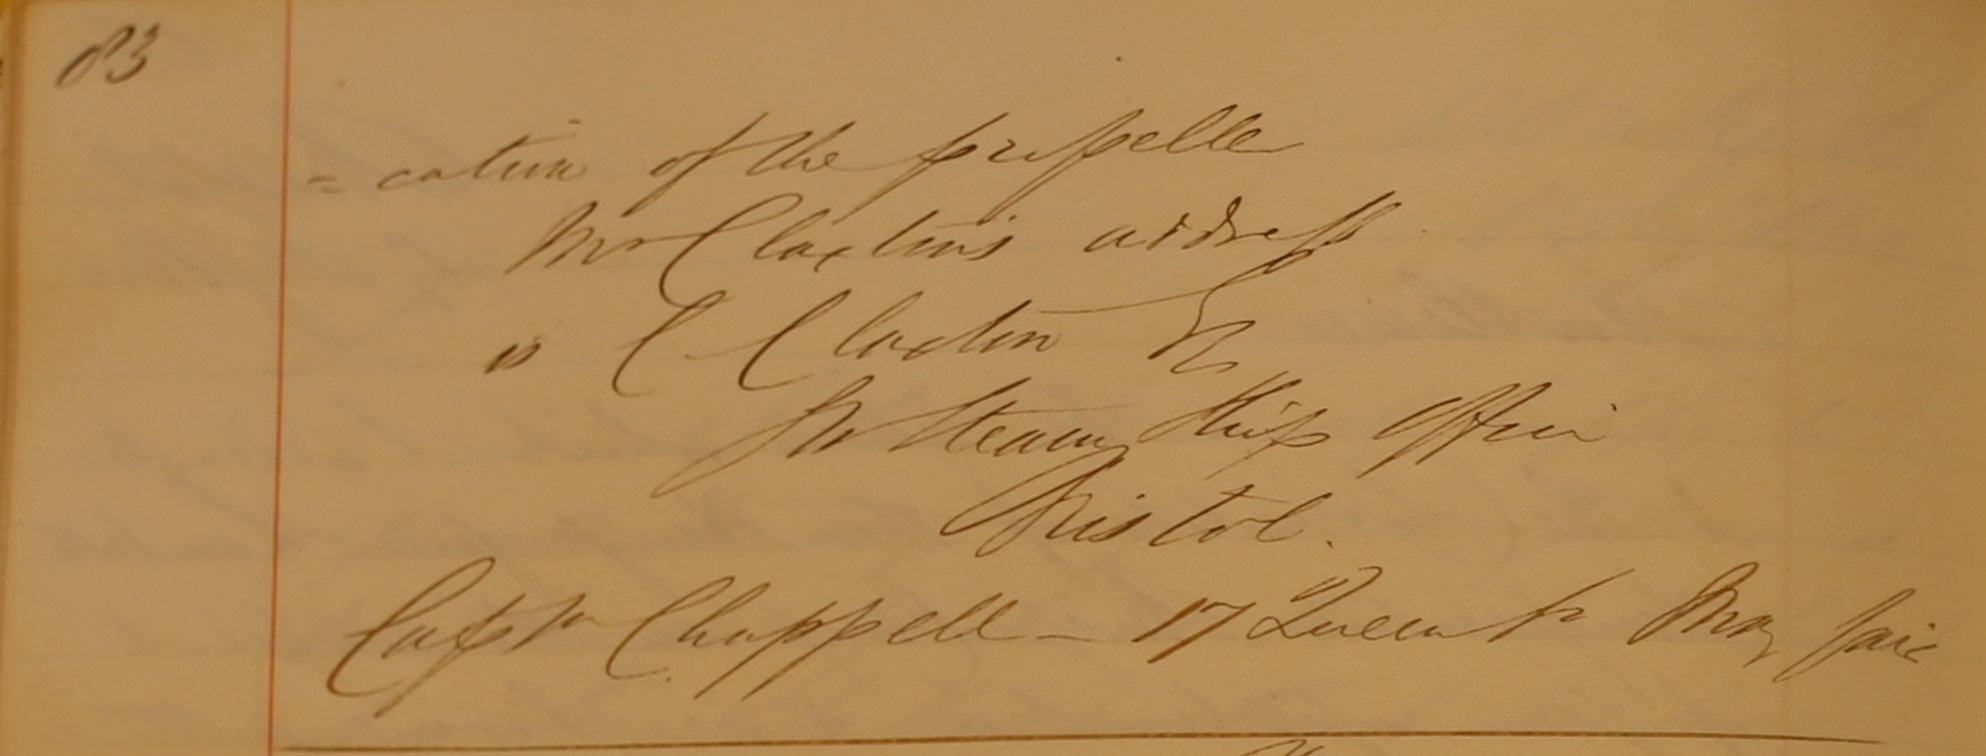 83
= cation of the propeller
Mr Claxton's address
is C Claxton Esq
Steam Ship Office
Bristol.
Captn Chappell - 17 Queen St May fair